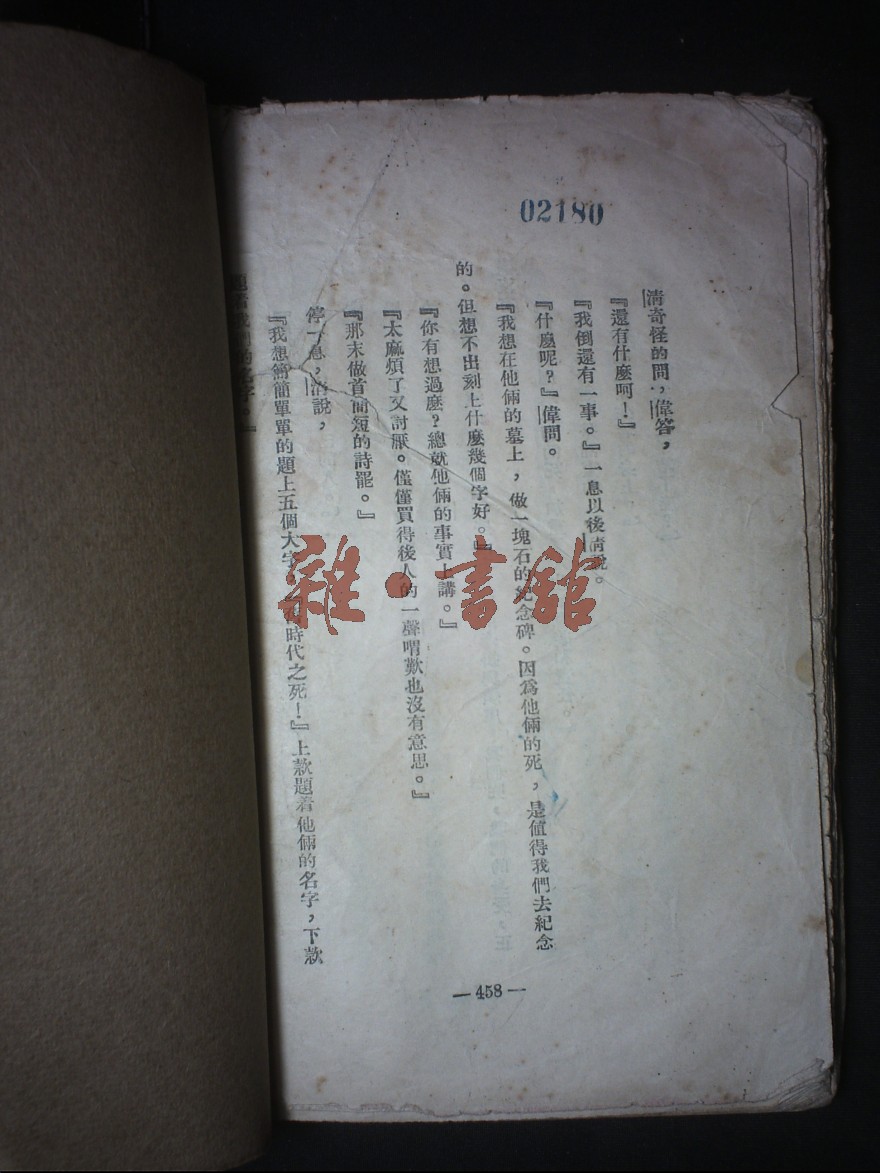 02180
清奇怪的問，偉答，
『還有什麼呵！』
『我倒還有一事。』一息以後清說。
『什麼呢？』偉問。
『我想在他倆的墓上，做一塊石的紀念碑。因爲他倆的死，是值得我們去紀念
的。但想不出刻上什麼幾個字好。』
『你有想過麼？總就他倆的事實上講。』
『太麻煩了又討厭。僅僅買得後人的一聲喟歎也沒有意思。』
『那末做首簡短的詩罷。』
停一息，清說，
『我想簡簡單單的題上五個大字，『舊時代之死！』上款題着他倆的名字，下款
題着我們的名字。』
— 458 —
雜·書館